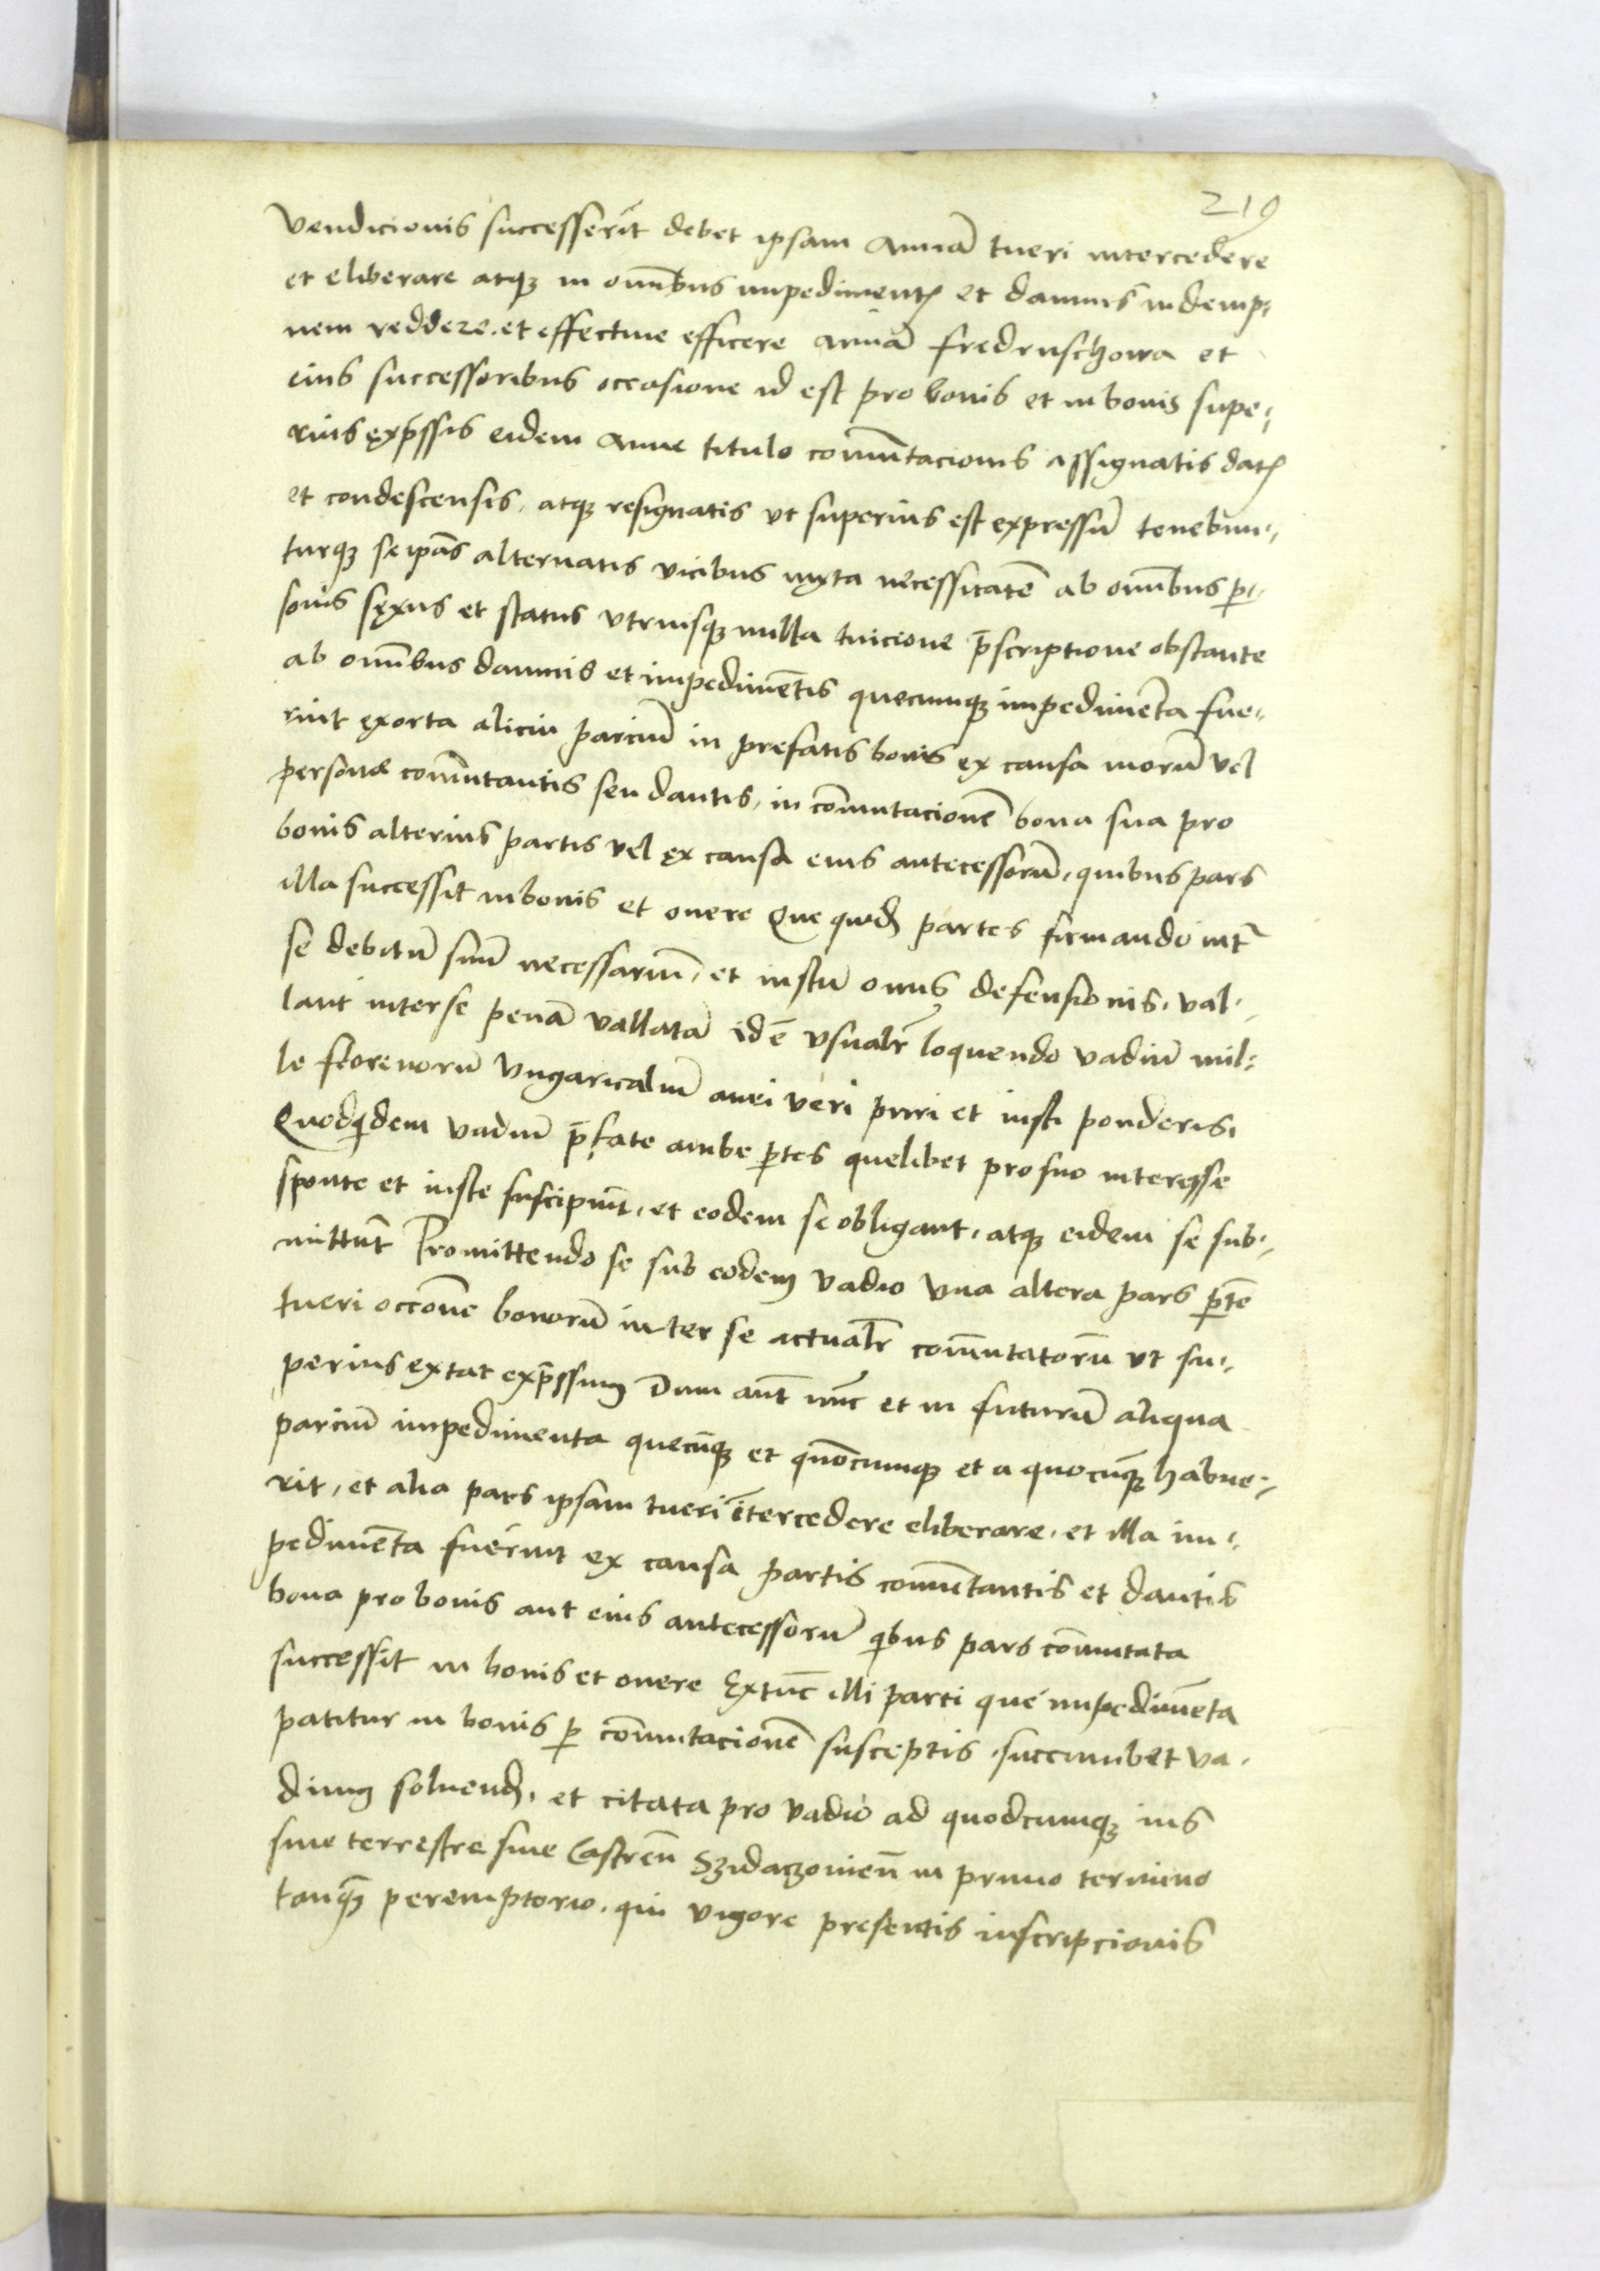 219
vendicionis successerīt debet ipsam Annā tueri intercedere
et eliberare atqȝ in om̄ibus impedimentꝭ et damnis indemp-
nem reddere. et effectiue efficere Annā Fredruschowa et
eius successoribus occasione id est pro bonis et in bonis supe-
rius exp̄ssis eidem Anne titulo com̄utacionis assignatis datꝭ
et condescensis, atqȝ resignatis vt superius est expressū tenebun-
turqȝ se ip̄as alternatis vicibus iuxta necessitatē ab om̄ibus ꝑ-
sonis sexus et status vtriusqȝ nulla tuicione p̄scriptione obstante
ab om̄ibus damnis et impedimētis quecumqȝ impedimēta fue-
rint exorta alicui parciū in prefatis bonis ex causa morū vel
personæ com̄utantis seu dantis, in com̄utacionē bona sua pro
bonis alterius partis vel ex causa eius antecessorū, quibus pars
illa successit in bonis et onere Que quidē partes firmando int̄
se debitū suū necessariū, et iustū onus defensionis. val-
lant inter se penā vallatā id ē vsualr̄ loquendo vadiū mil-
le florenorū Vngaricaliū auri veri puri et iusti ponderis,
Quodq̄dem vadiū p̄fate ambe ꝑtes quelibet pro suo interesse
sponte et iuste suscipiūt, et eodem se obligant, atqȝ eidem se sub-
mittūt Promittendo se sub eodem vadio vna altera pars ꝑtē
tueri occ̄one bonorū inter se actualr̄ com̄utatorū vt su-
perius extat exp̄ssum Dum aūt nūc et in futurū aliqua
parciū impedimenta quecūqȝ et quōcumqȝ et a quocūqȝ habue-
rit, et alia pars ipsam tueri ītercedere eliberare. et illa im-
pedimēta fuerint ex causa partis com̄utantis et dantis
bona pro bonis aut eius antecessorū q̄bus pars com̄utata
successit in bonis et onere Extūc illi parti que impedimēta
patitur in bonis ꝑ com̄utacionē susceptis, succumbet va-
dium soluendū. et citata pro vadio ad quodcumqȝ ius
siue terrestre siue Castren̄ Szidaczouien̄ in primo termino
tanq̄ȝ peremptorio. qui vigore presentis inscripcionis